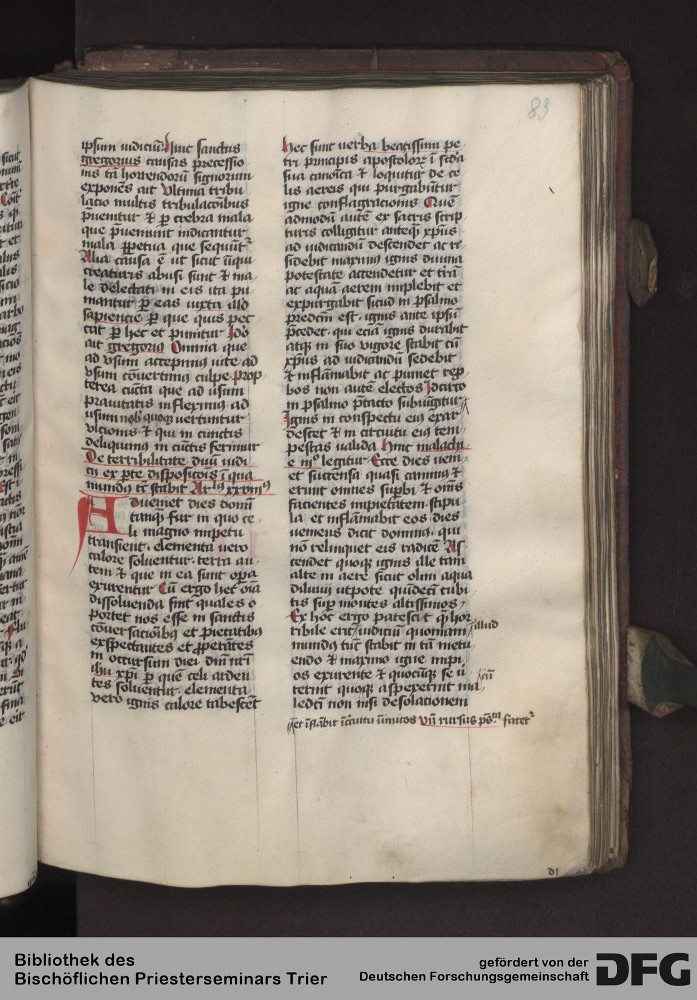 83
ipsum iudiciū. Hinc sanctus
gregorius causas precessio
nis tā horrendorū signorum
exponēs ait Vltima tribu
lacio multis tribulacōnibus
p̄uenitur & p crebra mala
que p̄ueniunt indicantur
mala ꝑpetua que sequunt᷑
Alia causa ē ut sicut iniqui
creaturis abusi sunt & ma
le delectati in eis ita pu
niantur ꝑ eas iuxta illd
sapiencie ꝑ que quis pec
cat ꝑ hec et punitur Ido
ait gregorius Omnia que
ad vsum accepimus uite ad
vsum cōuertimus culpe prop
terea cūcta que ad usum
prauitatis infleximus ad
usum nobis quoque uertuntur
vlcionis & qui in cunctis
deliquimus in cūctis ferimur
De terribilitate diuini iudi
cii ex ꝑte disposicōis ī qua
mundus tūc stabit Ar⁹ xxviii⁹
Adueniet dies domī
tamqͣ fur in quo ce
li magno impetu
transient. elementa uero
calore soluentur. terra au
tem & que in ea sunt oꝑa
exurentur Cū ergo hec oīa
dissoluenda sint quales o
portet nos esse in sanctis
cōuersacionibus et pietatibus
expectantes et ꝓperātes
in occursum diei dn̄i nr̄i
ihu xp̄i ꝑ que celi arden
tes soluentur. elementa
vero ignis calore tabescēt
Hec sunt uerba beatissimi pe
tri principis apostolorꝫ ī scd̄a
sua canoīca & loquitur de ce
lis aereis qui purgabūtur
igne conflagracionis Quē
admodū autē ex sacris scrip
turis colligitur anteqͣ xp̄us
ad iudicandū descendet ac re
sidebit maximus ignis diuina
potestate accendetur et trā
ac aquā aerem implebit et
expurgabit sicud in psalmo
predcm̄ est. ignis ante ipsū
p̄cedet. qui eciā ignis durabit
atqꝫ in suo vigore stabit cū
xp̄us ad iudicandū sedebit
& inflāmabit ac puniet rep̄
bos non autē electos Idcirco
in psalmo p̄tacto subiūgitur
Ignis in conspectu eius exar
descet & in circuitu eius tem
pestas valida Hinc malachi
e iiiº legitur Ecce dies veni
et succensa quasi caminus &
erunt omnes supbi & om̄s
facientes impietatem stipu
la et inflāmabit eos dies
ueniens dicit dominus qui
nō relinquet eis radicē As
cendet quoqꝫ ignis ille tam
alte in aere sicut olim aqua
diluuii utpote quīdeci cubi
tis suꝑ montes altissimos
Ex hoc ergo patescit qͣ hor
ribile erit illud iudiciū quoniam
mundus tūc stabit in tā metu
endo & maximo igne impi
os exurente & quocūqꝫ se u
terint quoqꝫ aspexerint ma
ledcti non nisi desolacionem
et
d1
Bibliothek des
Bischöflichen Priesterseminars Trier
gefördert von der
Deutschen Forschungsgemeinschaft DFG